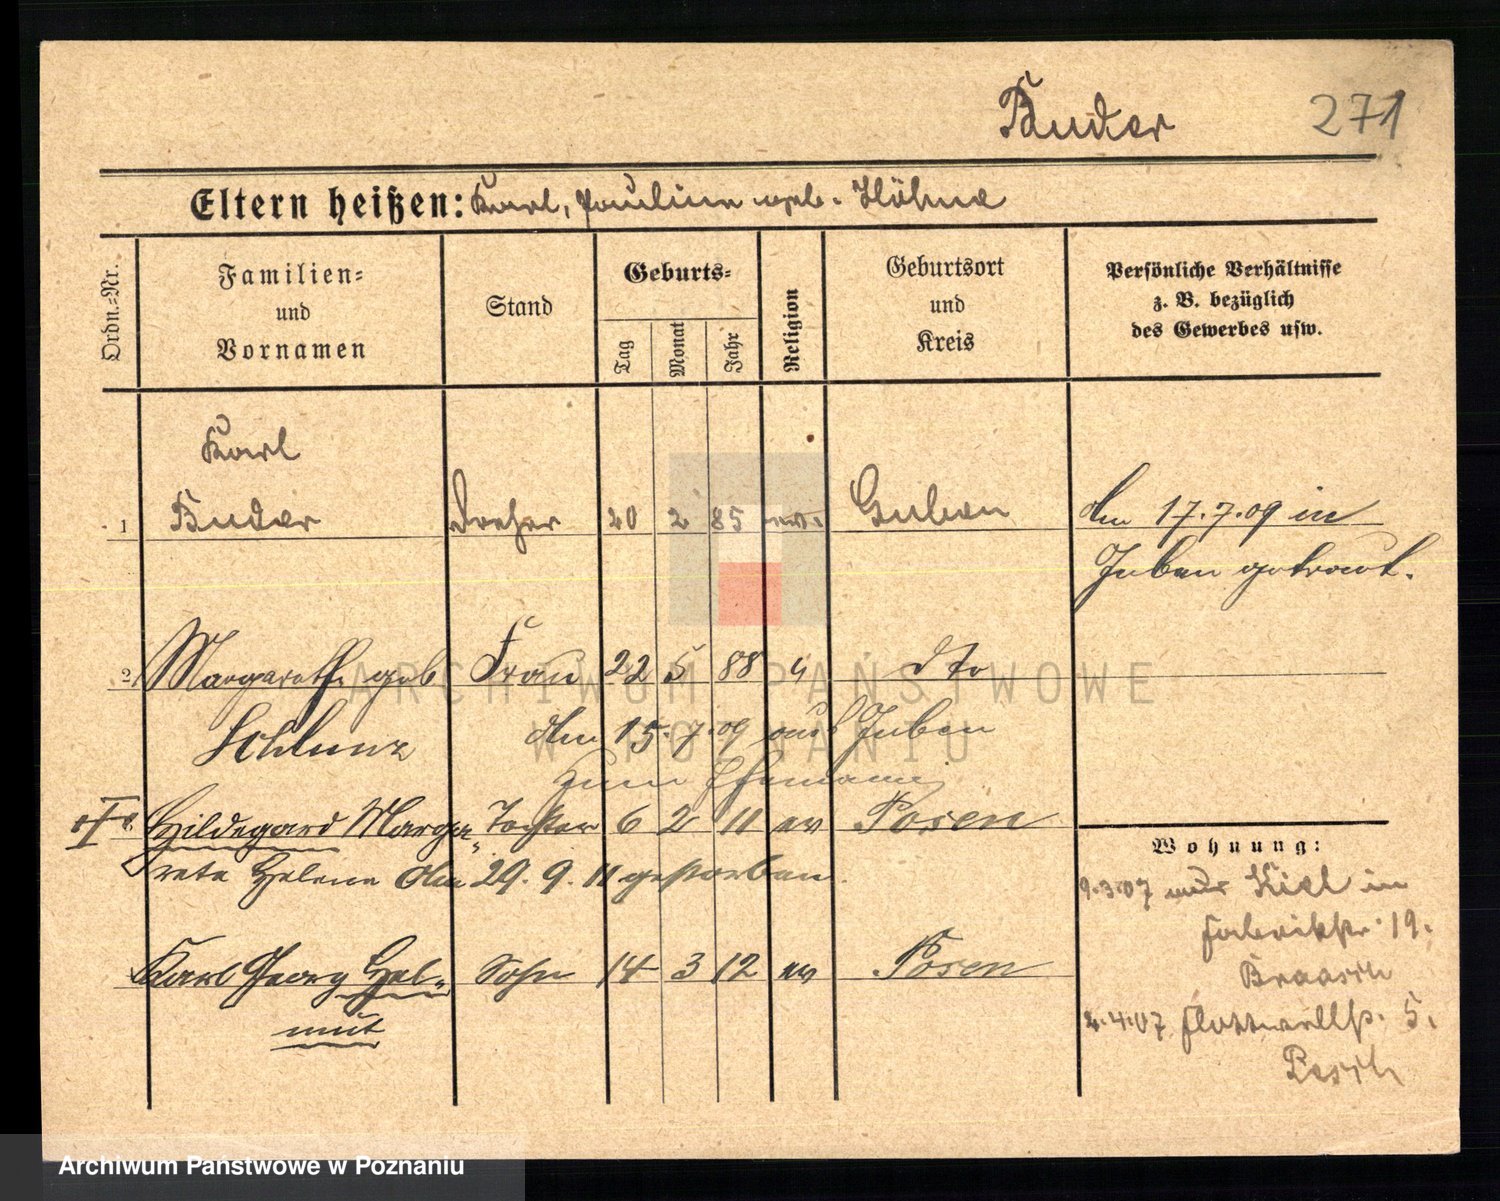 Buder 271
Eltern heißen: Karl, Pauline geb. Höhne
Ordn.-Nr.
Familien- und Vornamen
Stand
Geburts-
Tag
Monat
Jahr
Religion
Geburtsort und Kreis
Persönliche Verhältnisse z. B. bezüglich des Gewerbes usw.
Karl
1 Buder Dreher 20 2 85 ev. Guben den 17.7.09 in
Guben getraut.
2 Margarethe geb Frau 22 5 88 " dto
Schlunz den 15.7.09 aus Guben
zum Ehemann
Hildegard Marga- Tochter 6 2 11 ev Posen
rete Helene den 29.9.11 gestorben.
Karl Georg Hel- Sohn 14 3 12 ev Posen
mut
Wohnung:
9.3.07 aus Kiel in
Fabrikstr. 19.
Braasch
2.4.07 Flottwellstr. 5.
Pesch
ARCHIWUM PAŃSTWOWE
W POZNANIU
Archiwum Państwowe w Poznaniu